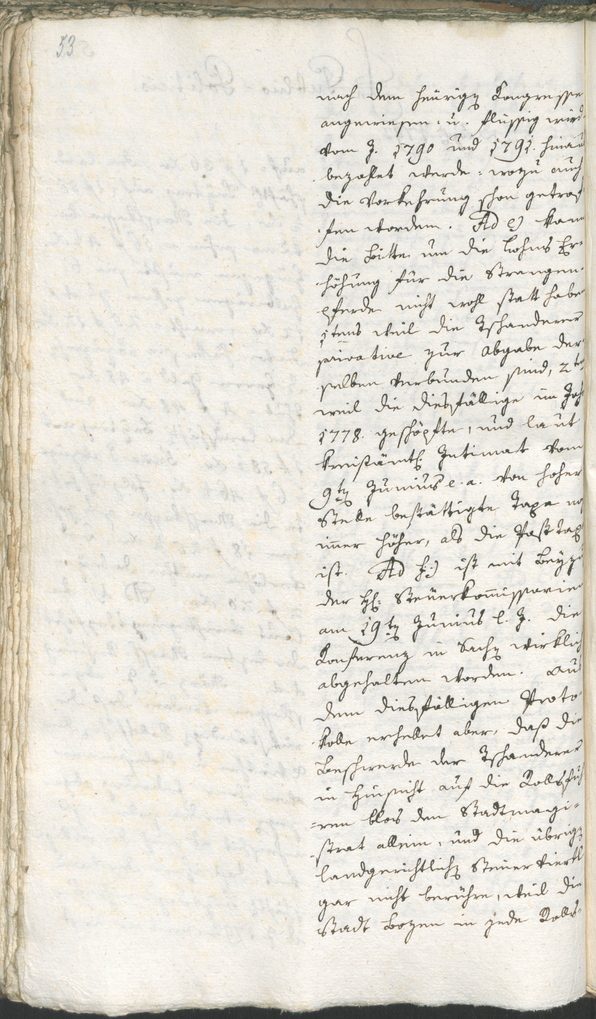 53
nach dem heürigen Kongresse
angewiesen u. flüssig wird
vom J. 1790 und 1791. hinaus
bezahlt werde: wozu auch
die Vorkehrung schon getrof
fen worden. Ad e) kann
die Bitte um die Lohns Er-
höhung für die Strangen-
pferde nicht wohl statt haben
1tens weil die Tschanderer
privative zur Abgabe der
selben verbunden sind, 2te
weil die diesfällige im Jah
1778. geschöpfte, und laut
kreisämtl Intimat vom
9ten Junius e. a. von hoher
Stelle bestättigte Taxe
immer höher, als die Posttax
ist. Ad f) ist mit Beyzi
der H: Steüerkommissarien
am 19ten Junius l. J. die
Konferenz in Sachen wirklich
abgehalten worden. Aus
dem diesfälligen Proto
kolle erhellet aber, daß die
Beschwerde der Tschanderer
in Hinsicht auf die Rollfuh
ren blos den Stadtmagi-
strat allein, und die übrige
landgerichtliche Steüerviertl
gar nicht berühre, weil die
Stadt Bozen in jede Roll-